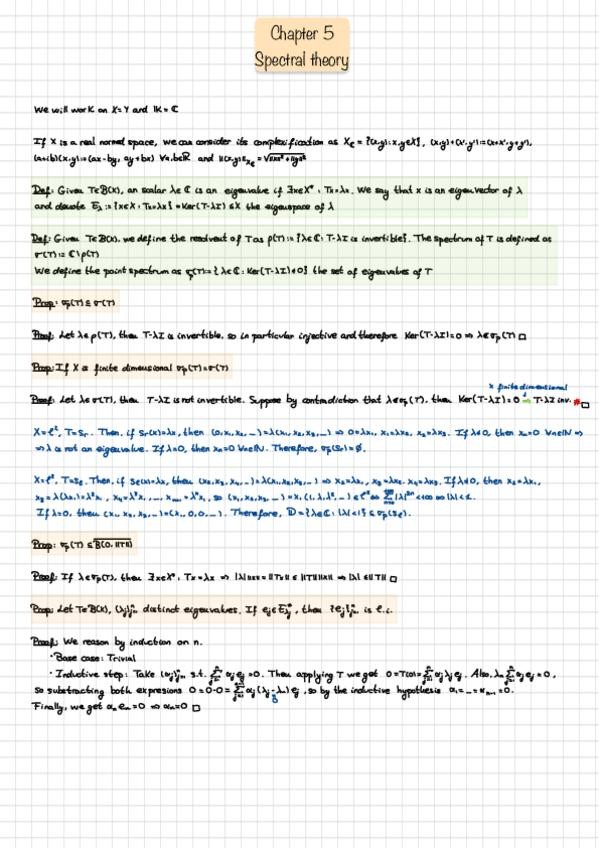 Chapter 5
Spectral theory
We will work on X=Y and 𝕂=ℂ
If X is a real normed space, we can consider its complexification as X_ℂ = {(x,y): x,y∈X}, (x,y)+(x',y')=(x+x',y+y'),
(a+ib)(x,y)=(ax-by, ay+bx) ∀a,b∈ℝ and ‖(x,y)‖_{X_ℂ} = √(‖x‖²+‖y‖²)
Def: Given T∈B(X), an scalar λ∈ℂ is an eigenvalue if ∃x∈X* : Tx=λx. We say that x is an eigenvector of λ
and denote E_λ := {x∈X : Tx=λx} = Ker(T-λI) ≤ X the eigenspace of λ
Def: Given T∈B(X), we define the resolvent of T as ρ(T):={λ∈ℂ: T-λI is invertible}. The spectrum of T is defined as
σ(T):=ℂ\ρ(T)
We define the point spectrum as σ_p(T):={λ∈ℂ: Ker(T-λI)≠0} the set of eigenvalues of T
Prop: σ_p(T) ⊆ σ(T)
Proof: Let λ∈ρ(T), then T-λI is invertible, so in particular injective and therefore Ker(T-λI)=0 ⇒ λ∉σ_p(T) □
Prop: If X is finite dimensional σ_p(T)=σ(T)
X finite dimensional
Proof: Let λ∈σ(T), then T-λI is not invertible. Suppose by contradiction that λ∉σ_p(T), then Ker(T-λI)=0 ⇒ T-λI inv. # □
X=ℓ², T=S_r. Then, if S_r(x)=λx, then (0,x₁,x₂,...)=λ(x₁,x₂,x₃,...) ⇒ 0=λx₁, x₁=λx₂, x₂=λx₃. If λ≠0, then x_n=0 ∀n∈ℕ ⇒
⇒ λ is not an eigenvalue. If λ=0, then x_n=0 ∀n∈ℕ. Therefore, σ_p(S_r)=∅.
X=ℓ², T=S_ℓ. Then, if S_ℓ(x)=λx, then (x₂,x₃,...)=λ(x₁,x₂,x₃,...) ⇒ x₂=λx₁, x₃=λx₂, x₄=λx₃. If λ≠0, then x₂=λx₁,
x₃=λ(λx₁)=λ²x₁, x₄=λ³x₁,..., x_{n+1}=λⁿx₁, so (x₁,x₂,x₃,...)=x₁(1,λ,λ²,...)∈ℓ² ⇔ ∑|λ|²ⁿ<+∞ ⇔ |λ|<1.
If λ=0, then (x₁,x₂,x₃,...)=(x₁,0,0,...). Therefore, 𝔻={λ∈ℂ: |λ|<1} ⊆ σ_p(S_ℓ).
Prop: σ_p(T) ⊆ \overline{B(0,‖T‖)}
Proof: If λ∈σ_p(T), then ∃x∈X* : Tx=λx ⇒ |λ|‖x‖=‖Tx‖≤‖T‖‖x‖ ⇒ |λ|≤‖T‖ □
Prop: Let T∈B(X), (λ_j)_{j=1}^n distinct eigenvalues. If e_j∈E_{λ_j}^*, then {e_j}_{j=1}^n is l.i.
Proof: We reason by induction on n.
• Base case: Trivial
• Inductive step: Take (α_j)_{j=1}^n s.t. ∑_{j=1}^n α_j e_j=0. Then applying T we get 0=T(0)=∑_{j=1}^n α_j λ_j e_j. Also, λ_n∑_{j=1}^n α_j e_j=0,
so substracting both expresions 0=0-0=∑ α_j(λ_j-λ_n)e_j, so by the inductive hypothesis α₁=...=α_{n-1}=0.
Finally, we get α_n e_n=0 ⇒ α_n=0 □